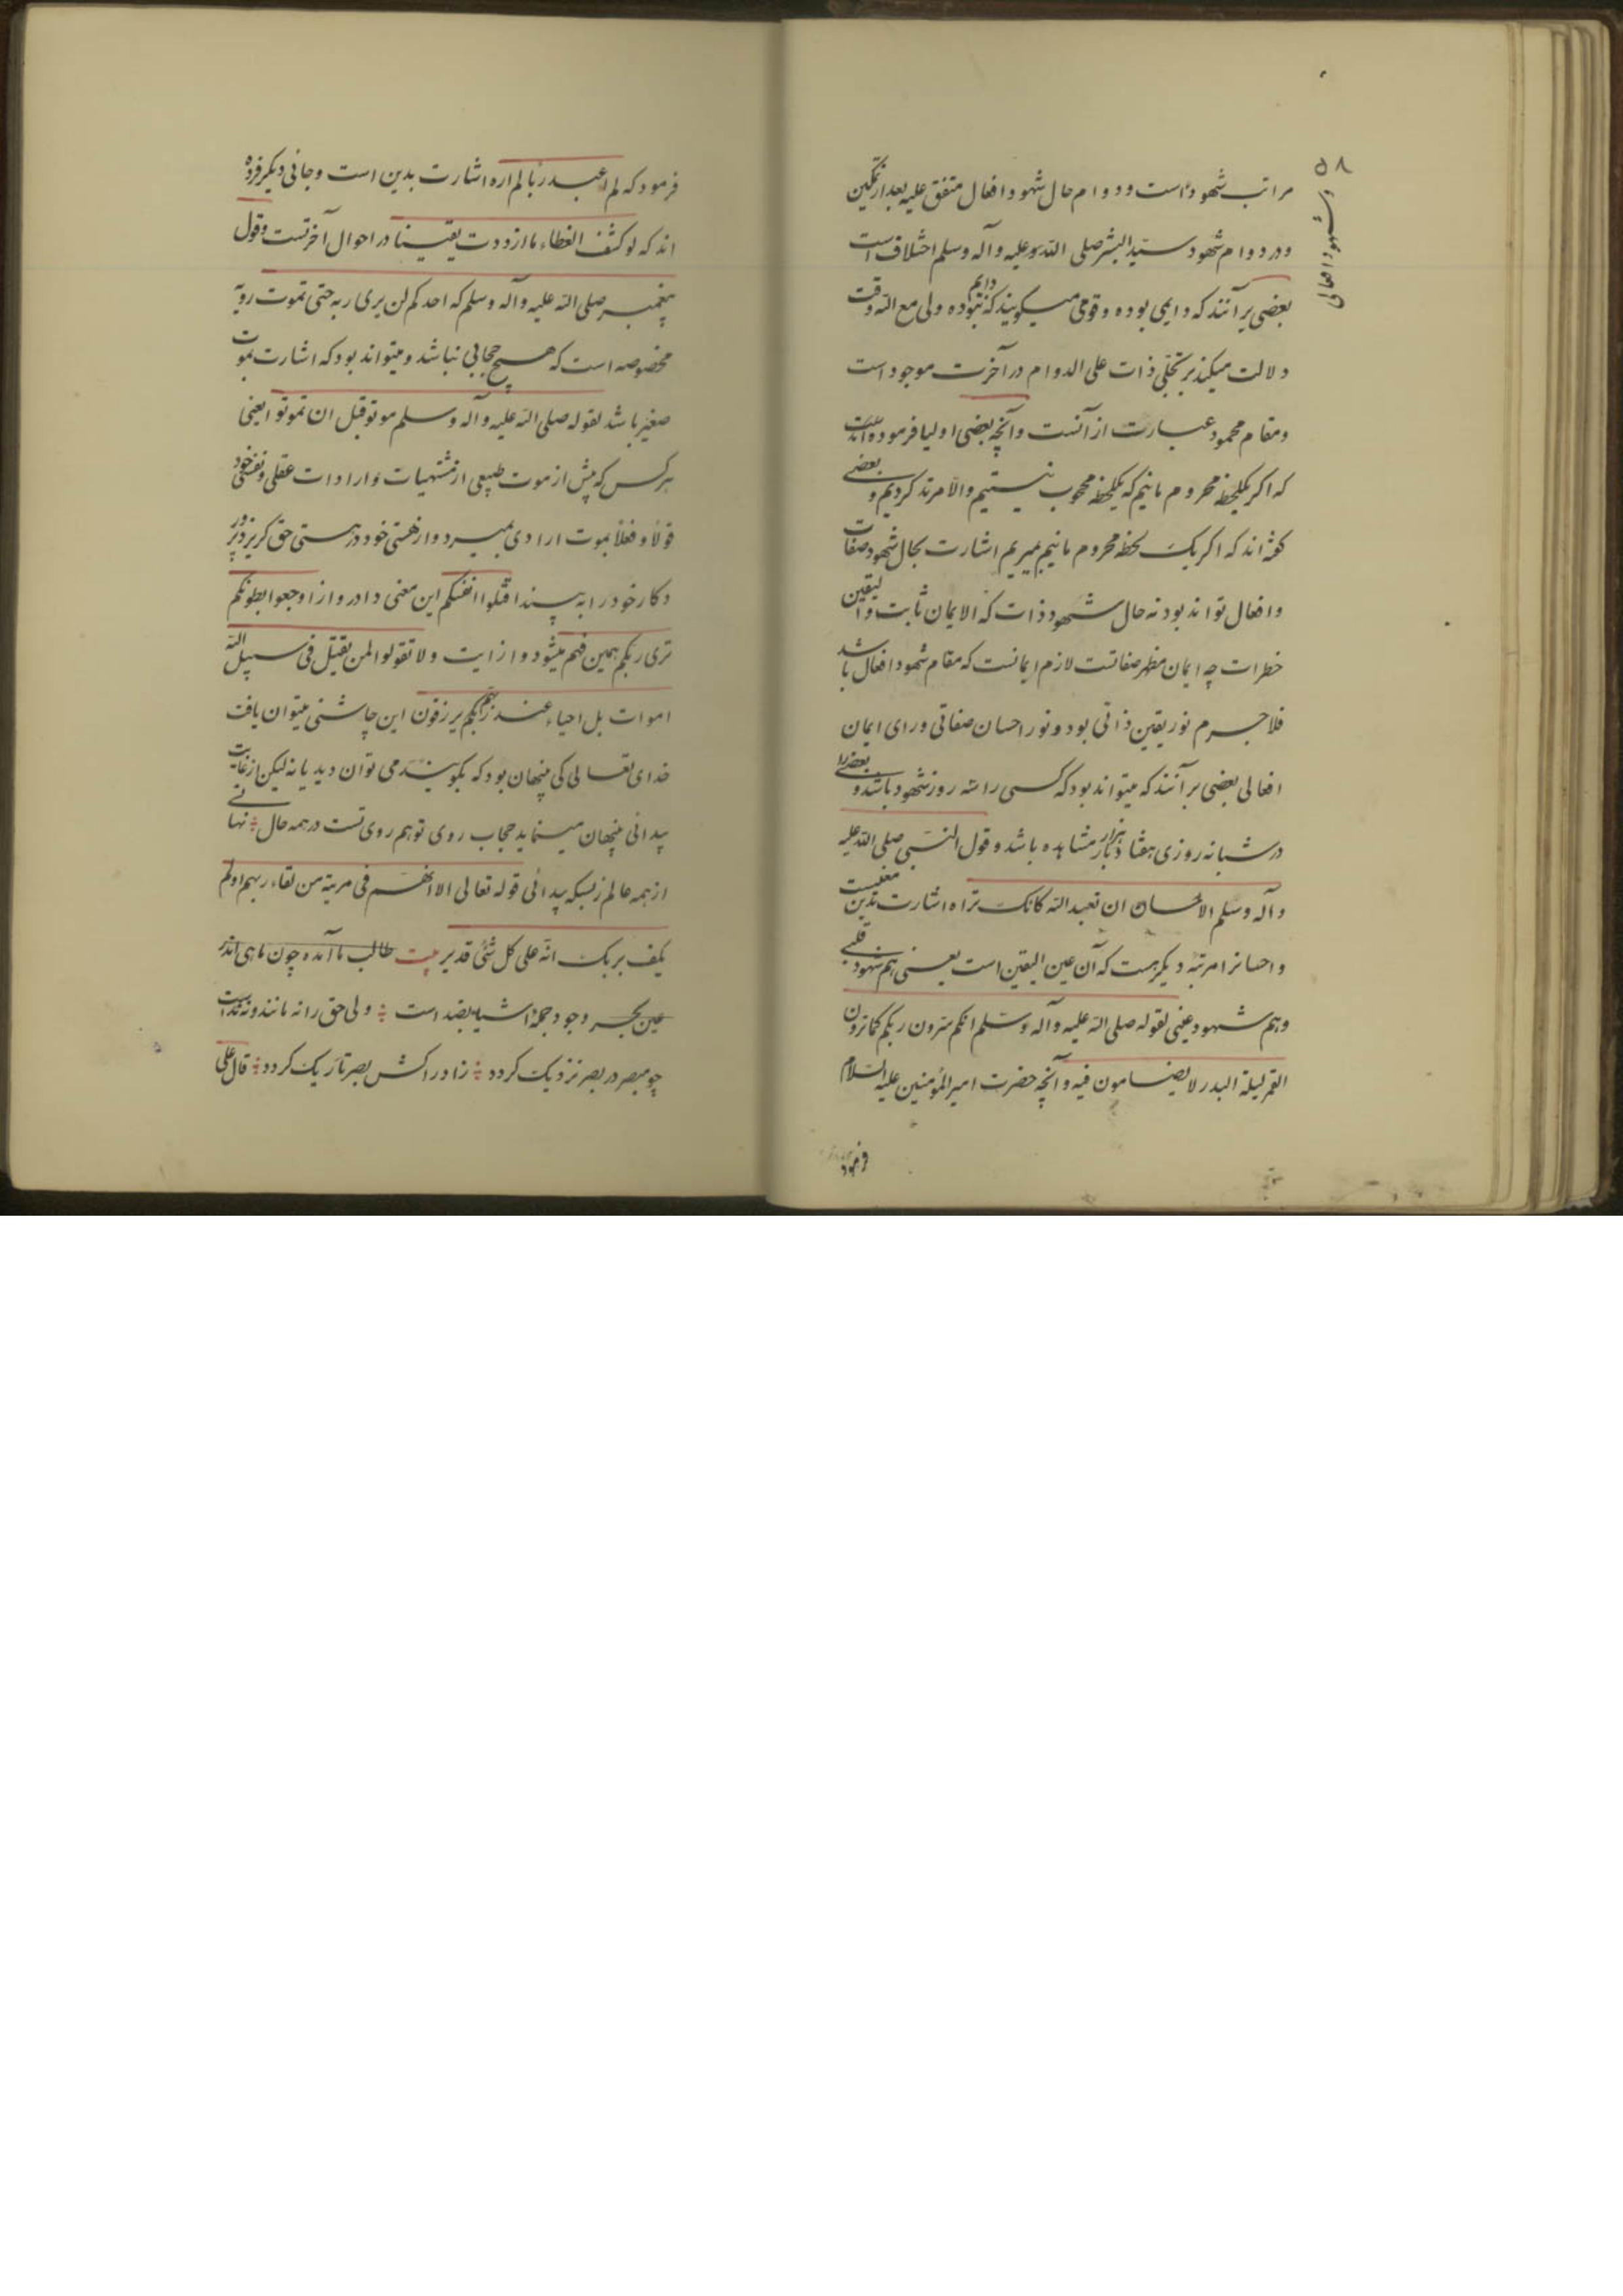 ۵۸
در شهود افعالی
مراتب شهود است و دوام حال شهود افعال متفق علیه بعد از تمکین
و در دوام شهود سید البشر صلی الله علیه و آله وسلم اختلاف است
بعضی بر آنند که دایمی بوده و قومی میکویند که دایم نبوده ولی مع الله وقت
دلالت میکند بر تجلی ذات علی الدوام در آخرت موجود است
و مقام محمود عبارت از آنست و آنچه بعضی اولیا فرموده اند
که اکر یکلحظه محروم مانیم که یکلحظه محجوب نیستیم والا مرتد کردیم و بعضی
کفته اند که اکر یک لحظه محروم مانیم بمیریم اشارت بحال شهود صفات
و افعال تواند بود نه حال شهود ذات که الایمان ثابت و الیقین
خطرات چه ایمان مظهر صفاتست لازم ایمانست که مقام شهود افعال باشد
فلاجرم نور یقین ذاتی بود و نور احسان صفاتی ورای ایمان
افعالی بعضی بر آنند که میتواند بود که کسی را سه روز شهود باشد و بعضی را
در شبانه روزی هفتاد هزار بار مشاهده باشد و قول النبی صلی الله علیه
و آله وسلم الاحسان ان تعبد الله کانک تراه اشارت بدین معنیست
و احسانرا مرتبه دیکر هست که آن عین الیقین است یعنی هم شهود قلبی
و هم شهود عینی لقوله صلی الله علیه و آله وسلم انکم سترون ربکم کما ترون
القمر لیلة البدر لا یضامون فیه و آنچه حضرت امیر المؤمنین علیه السلام
فرمود
فرمود که لم اعبد ربا لم اره اشارت بدین است و جائی دیکر فرموده
اند که لو کشف الغطاء ما ازددت یقینا در احوال آخرتست و قول
پیغمبر صلی الله علیه و آله وسلم که احدکم لن یری ربه حتی تموت رویة
مخصوصه است که هیچ حجابی نباشد و میتواند بود که اشارت بموت
صغیر باشد لقوله صلی الله علیه و آله وسلم موتو قبل ان تموتوا یعنی
هر کس که پیش از موت طبیعی از مشتهیات و ارادات عقلی و نفسی خود
قولا و فعلا بموت ارادی بمیرد و از هستی خود در هستی حق کریزد و پر
دکار خود را به بیند اقتلوا انفسکم این معنی دادد و از اوجعوا بطونکم
تری ربکم همین فهم میشود و از ایت و لا تقولوا لمن یقتل فی سبیل الله
اموات بل احیاء عند ربهم یرزقون این چاشنی میتوان یافت
خدای تعالی کی پنهان بود که بکویند می توان دید یا نه لیکن از غایت
پیدائی پنهان مینماید حجاب روی تو هم روی تست در همه حال نهانی
از همه عالم زبسکه پیدائی قوله تعالی الا انهم فی مریة من لقاء ربهم اولم
یکف بربک انه علی کل شئ قدیر بیت طالب ما آمده چون ماهی اندر
عین بحر وجود جملهٔ اشیا بضد است ولی حق را نه مانند و نه نداست
چو مبصر در بصر نزدیک کردد ز ادراکش بصر تاریک کردد قال علی